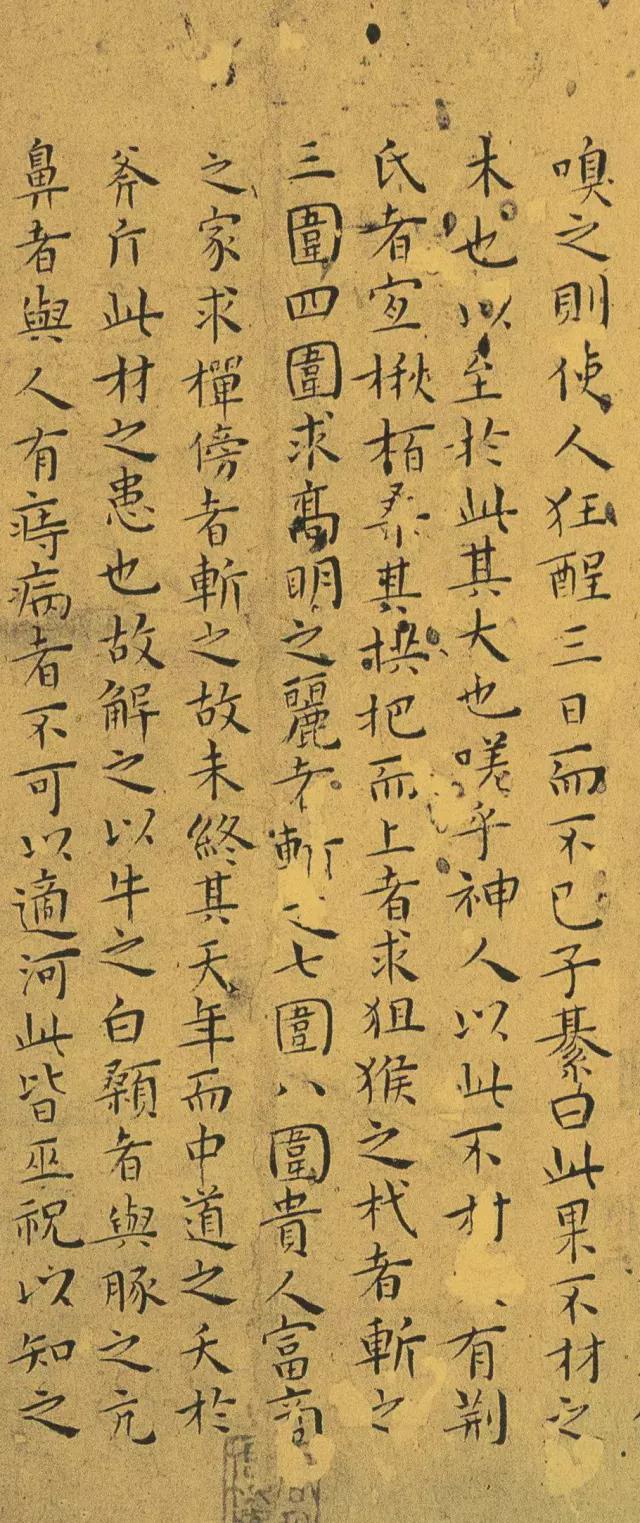 嗅之則使人狂酲三日而不已子綦曰此果不材之
木也以至於此其大也嗟乎神人以此不材有荆
氏者宜楸栢桒其拱把而上者求狙猴之杙者斬之
三圍四圍求髙明之麗者斬之七圍八圍貴人富商
之家求樿傍者斬之故未終其天年而中道之夭於
斧斤此材之患也故解之以牛之白顙者與豚之亢
鼻者與人有痔病者不可以適河此皆巫祝以知之